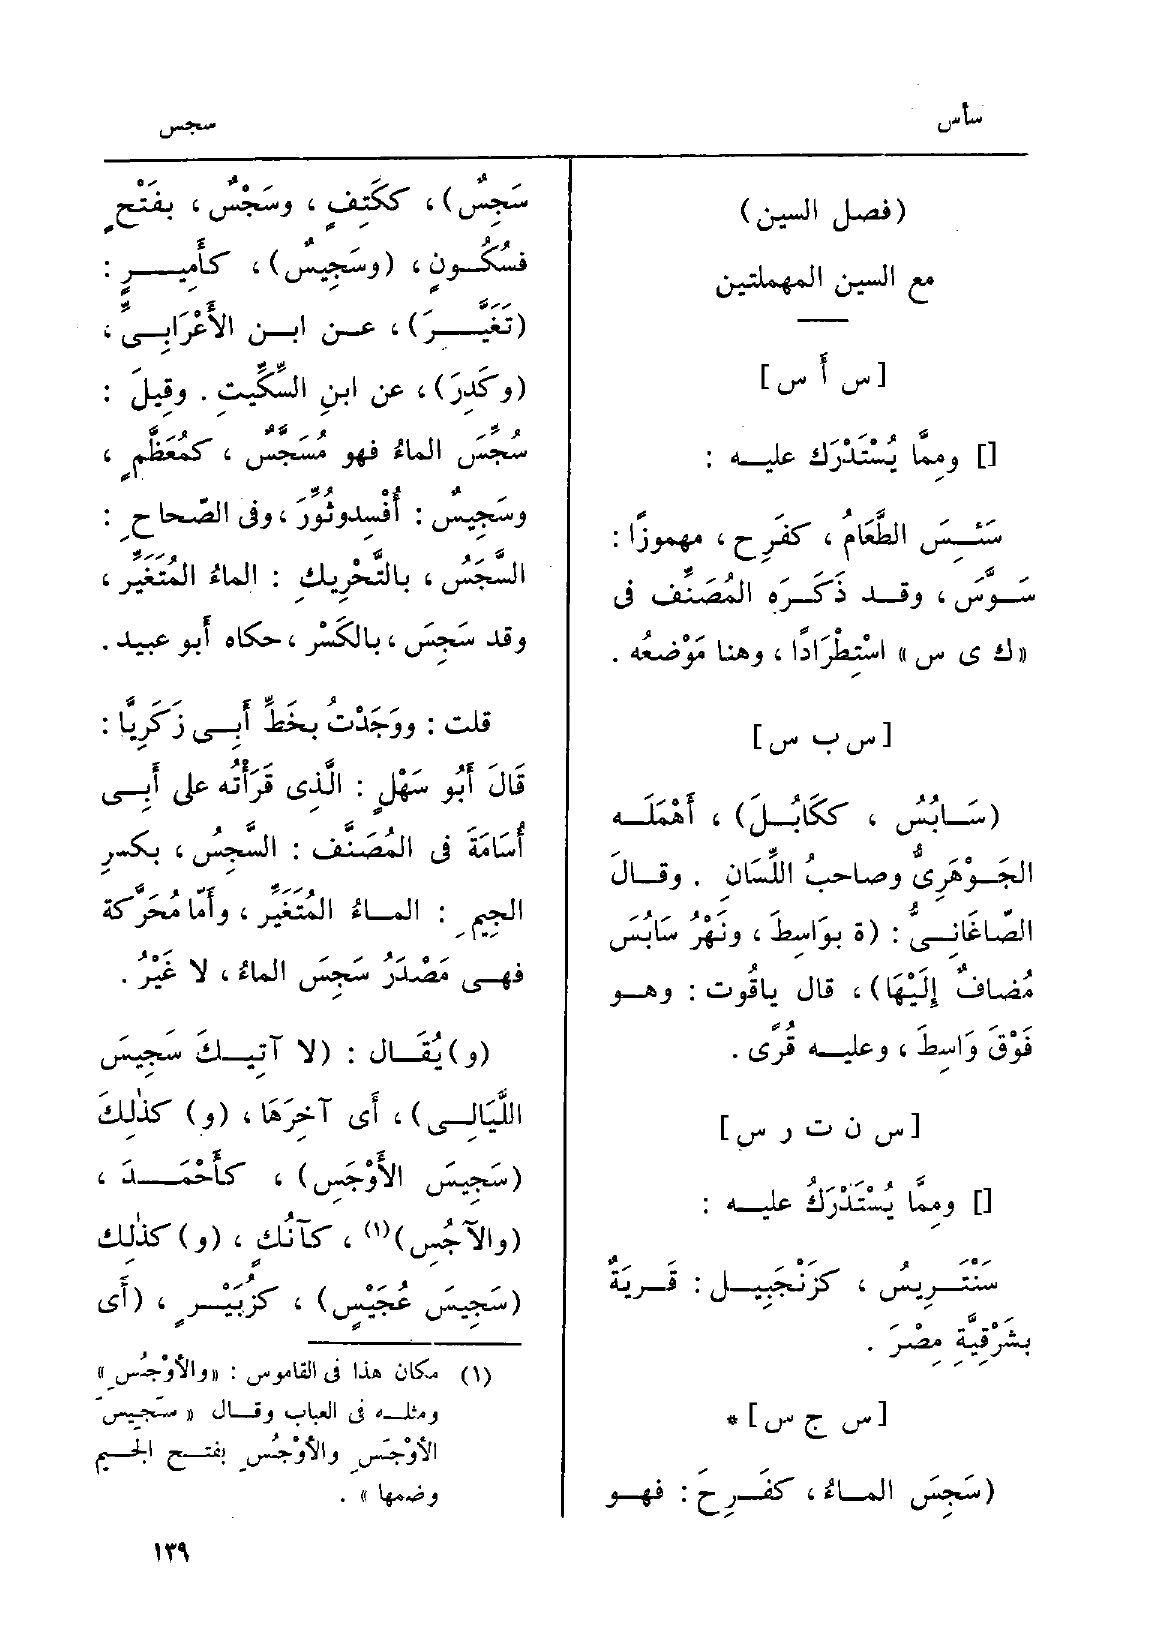 سأس
سجس
(فصل السين)
مع السين المهملتين
[س أ س]
[] ومِمَّا يُسْتَدْرَك عليـه :
سَئـِسَ الطَّعَامُ ، كفَرِح ، مهموزًا :
سَـوَّسَ ، وقـد ذَكَـرَه المُصَنِّف فى
«ك ى س» اسْتِطْرَادًا ، وهنا مَوْضعُه .
[س ب س]
(سَـابُسُ ، ككَابُـلَ) ، أَهْمَلَـه
الجَـوْهَرِىُّ وصاحبُ اللِّسَانِ . وقـالَ
الصّاغَانِـىُّ : (ة بوَاسِطَ ، ونَهْرُ سَابُسَ
مُضافٌ إِلَيْهَا) ، قال ياقُوت : وهـو
فَوْقَ وَاسِطَ ، وعليـه قُرًى .
[س ن ت ر س]
[] ومِمَّا يُسْتَدْرَكُ عليـه :
سَنْتَـرِيسُ ، كزَنْجَبِيـل : قَـريَةٌ
بشَرْقِيَّةِ مِصْرَ .
[س ج س] *
(سَجِسَ المـاءُ ، كفَـرِحَ : فهـو
سَجِسٌ) ، ككَتِفٍ ، وسَجْسٌ ، بفَتْحٍ
فسُكُـونٍ ، (وسَجِيسٌ) ، كأَمِيـرٍ :
(تَغَيَّـرَ) ، عـن ابـن الأَعْرَابِـىِّ ،
(وكَدِرَ) ، عن ابنِ السِّكِّيتِ . وقِيلَ :
سُجِّسَ الماءُ فهو مُسَجَّسٌ ، كمُعَظَّمٍ ،
وسَجِيسٌ : أُفْسِدوثُوِّرَ ، وفى الصّحاحِ :
السَّجَسُ ، بالتَّحْرِيكِ : الماءُ المُتَغَيِّر ،
وقد سَجِسَ ، بالكَسْر ، حكاه أَبو عبيد .
قلت : ووَجَدْتُ بخَطِّ أَبِـى زَكَرِيَّا :
قَالَ أَبُو سَهْلٍ : الَّذِى قَرَأْتُه على أَبِـى
أُسَامَةَ فى المُصَنَّف : السَّجِسُ ، بكسرِ
الجِيمِ : المـاءُ المُتَغَيِّر ، وأَمّا مُحَرَّكة
فهـى مَصْدَرُ سَجِسَ الماءُ ، لا غَيْرُ .
(و)يُقَـال : (لا آتِيـكَ سَجِيسَ
اللَّيَالِـى) ، أَى آخِرَهَا ، (و) كذٰلِكَ
(سَجِيسَ الأَوْجَسِ) ، كأَحْمَـدَ ،
(والآجُسِ)(١) ، كآنُكٍ ، (و) كذٰلِك
(سَجِيسَ عُجَيْسٍ) ، كزُبَيْـرٍ ، (أَى
(١) مكان هذا فى القاموس : «والأوْجُسِ»
ومثلـه فى العباب وقـال «سَجِيسَ
الأوْجَسِ والأوْجُسِ بفتـح الجـيم
وضمها» .
١٣٩